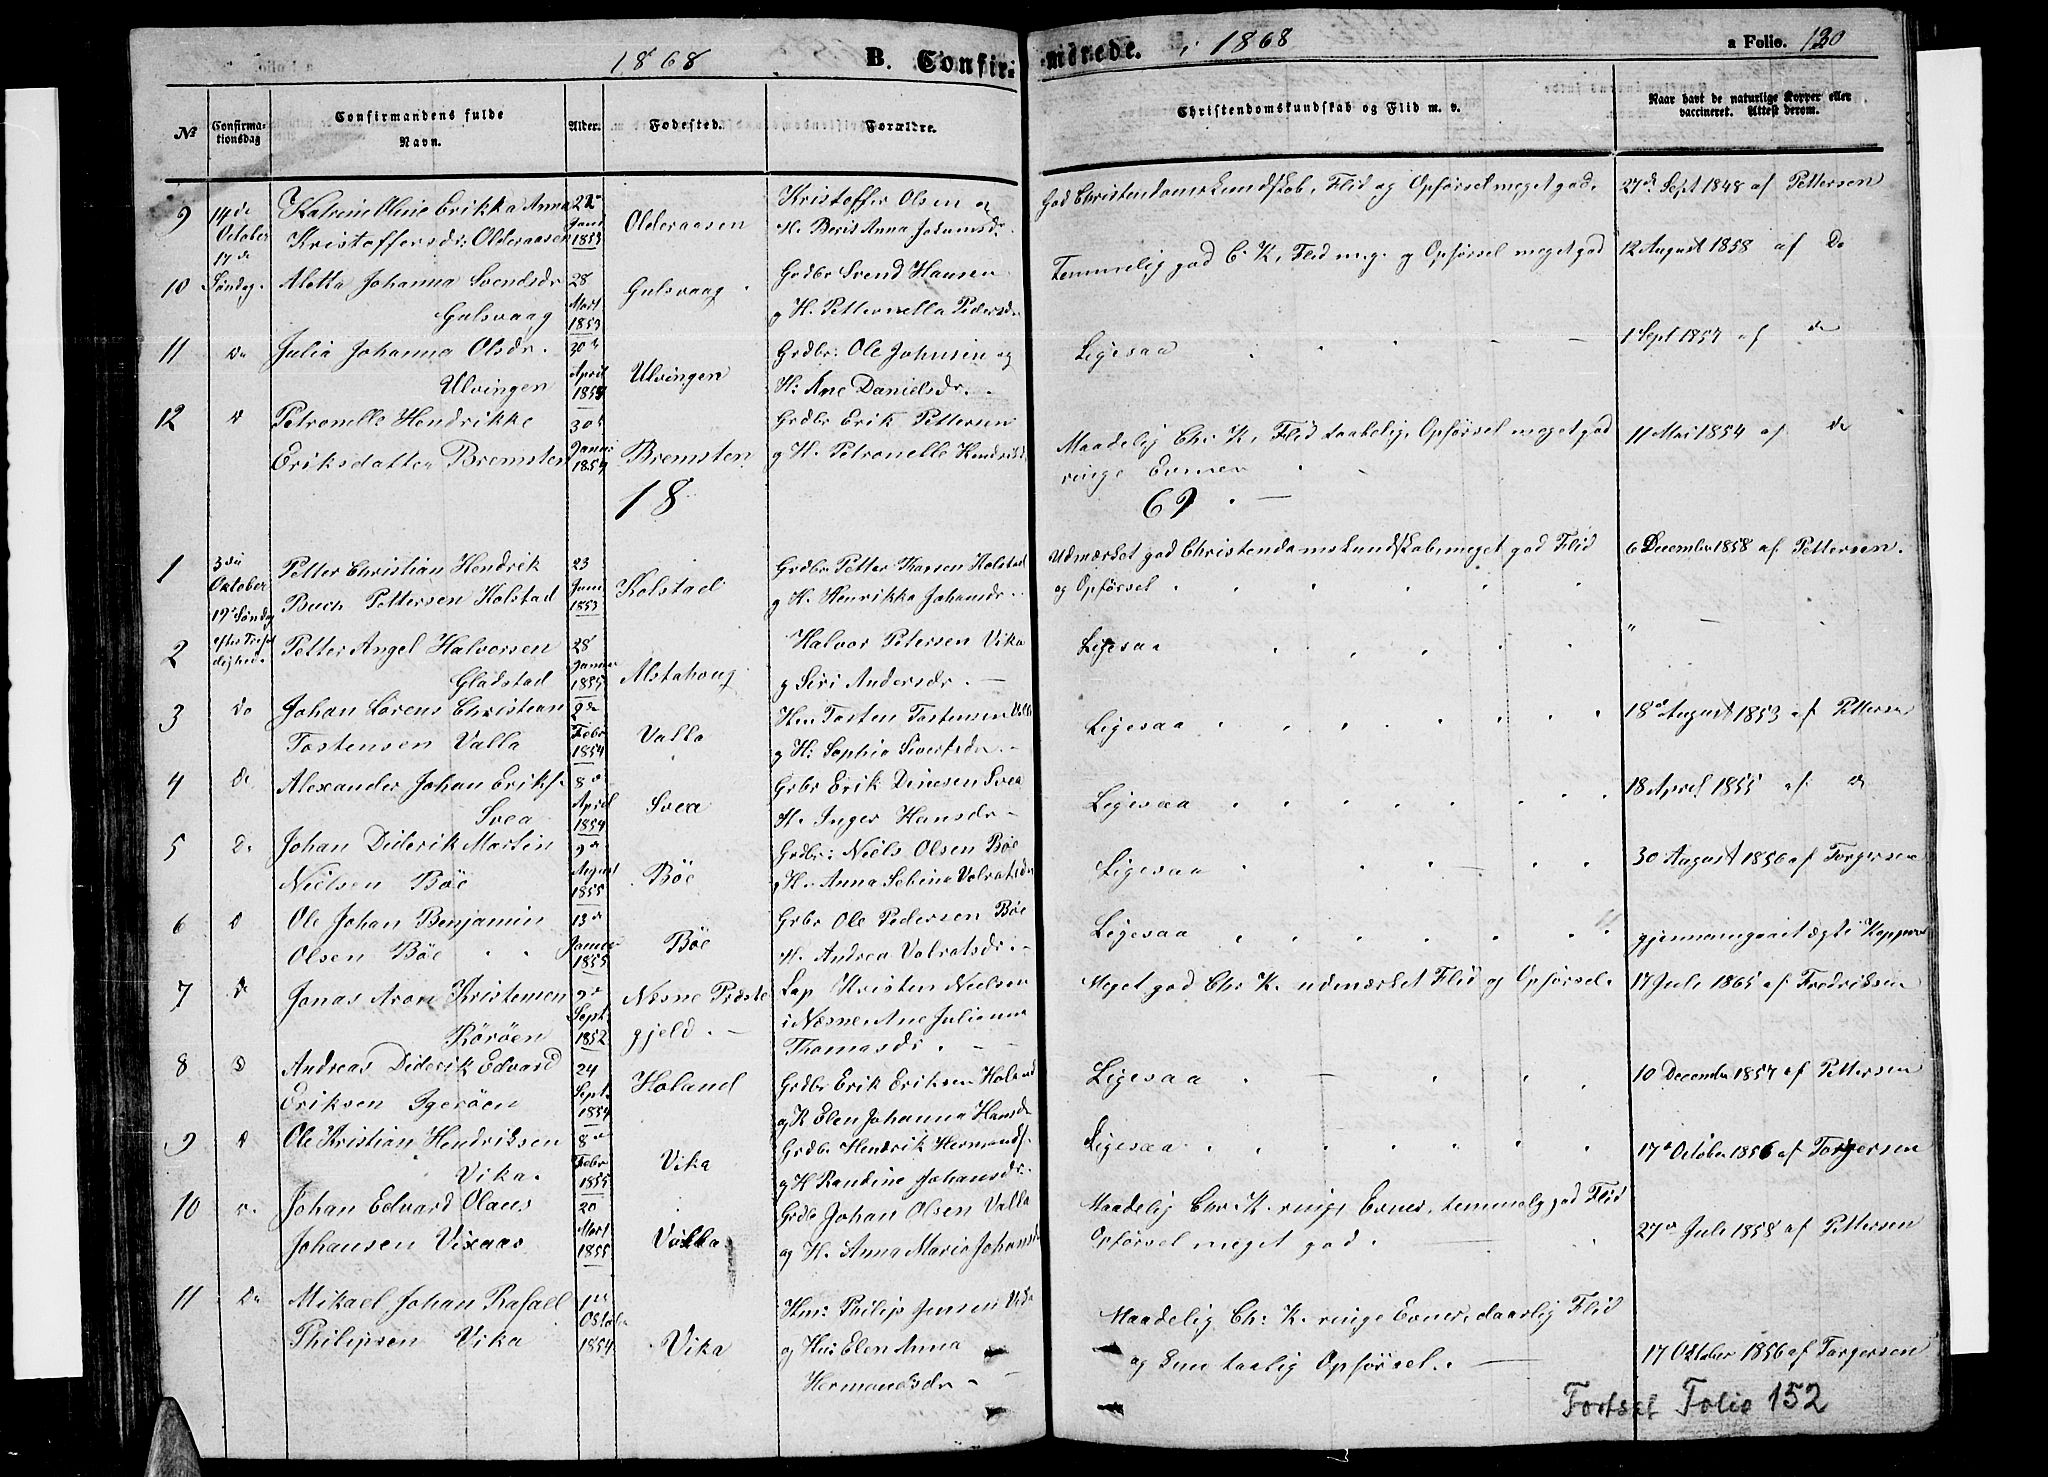 1868 B. Confir-
mdrede. i 1868 a Folio. 130
№
Confirma-
tionsdag
Confirmandens fulde
Navn.
Alder.
Fodested.
Forældre.
Christendomskundskab og Flid m. v.
Naar havt de naturlige Kopper eller
vaccineret. Attest derom.
9 14de October Katrine Oline Erikka Anna
Kristoffersdr: Olderaasen
1853
Olderaasen
Kristoffer Olsen og
H. Berit Anna Johansdr
God Christendomskundskab, Flid og Opførsel meget god.
27de Sept 1848 af Pettersen
10 17de Søndag. Aletta Johanna Svendsdr
Gulsvaag
28 Mart 1853
Gulsvaag
Grdbr Svend Hansen
g H. Petternella Pedersdr
Temmelig god C. K. Flid m.g. og Opførsel meget god
12 August 1858 af Do
11 Do Julia Johanna Olsdr.
Ulvingen
30te April 1854
Ulvingen
Grdbr: Ole Johnsen og
H: Ane Danielsdr.
Ligesaa
1 Sept 1857 af do
12 D Petronelle Hendrikke
Eriksdatter Bremsten
30te Januar 1854
Bremsten
Grdbr Erik Pettersen
g H. Petronelle Hendriksd
Maadelig Chr. K, Flid taalelig, Opførsel meget god
ringe Evner
11 Mai 1854 af do
18
69
1 3die Oktober
19de Søndag
efter Trefoldighed.
Petter Christian Hendrik
Buch Pettersen Kolstad
23 Juni 1853
Kolstad
Grdbr Petter Hansen Kolstad
g H. Henrikka Johansdr.
Udmærket god Christendomskundskab, meget god Flid
og Opførsel
6 December 1858 af Pettersen.
2 Petter Angel Halvorsen
Gladstad
28 Januar 1855
Alstahoug
Halvor Petersen Vika
g Siri Andersdr.
Ligesaa
3 Do Johan Sørens Christian
Tostensen Valla
2de Febr 1854
Valla
Hm Tosten Tostensen Valla
g H: Sophia Sivertsdr.
Ligesaa
18de August 1853 af Pettersen
4 D Alexander Johan Eriks.
Svea
8de April 1854
Svea
Grbr Erik Dinesen Svea
H. Inger Hansdr
Ligesaa
18 April 1855 af do
5 D Johan Diderik Martin
Nielsen Böe
August 1855
Böe
Grdbr: Niels Olsen Böe
g H. Anna Sebina Volratsdr
Ligesaa
30 August 1856 af Torgersen
6 D Ole Johan Benjamin
Olsen Böe
13de Januar 1855
Böe
Grbr Ole Pedersen Böe
H. Andrea Volratsdr.
Ligesaa
gjennemgaaet ægte Kopper
7 D Jonas Aron Kristensen
Rörøen
9de Sept. 1852
Næsne Præste
gjeld.
Lap Kristen Nielsen
i Næsne Ane Julianna
Thomasdr.
Meget god Chr K. udmærket Flid og Opførsel.
17 Juli 1865 af Fredriksen
8 D Andreas Diderik Edvard
Eriksen Igerøen
24 Sept. 1854
Holand
Grdbr Erik Eriksen Holand
g K Elen Johanna Hansdr
Ligesaa
10 December 1857 af Pettersen
9 D Ole Kristian Hendriksen
Vika.
8de Febr 1855
Vika
Grdbr Hendrik Hermands.
g H Randine Johansdr.
Ligesaa
17de October 1856 af Torgersen
10 Johan Edvard Olaus
Johansen Vixaas
20 Mart 1855
Valla
Grdbr Johan Olsen Valla
og H. Anna Maria Johansdr
Maadelig Chr. K. ringe Evner, temmelig god Flid
Opførsel meget god.
27de Juli 1858 af Pettersen
11 Do Mikael Johan Rafael
Philipsen Vika
1ste Oktob. 1854
Vika
Hm: Philip Jensen Vika
og Hu: Elen Anna
Hermandsdr
Maadelig Ch: K. ringe Evner, daarlig Flid
og taalig Opførsel.
17 Oktober 1856 af Torgersen
Fortsat Folio 152